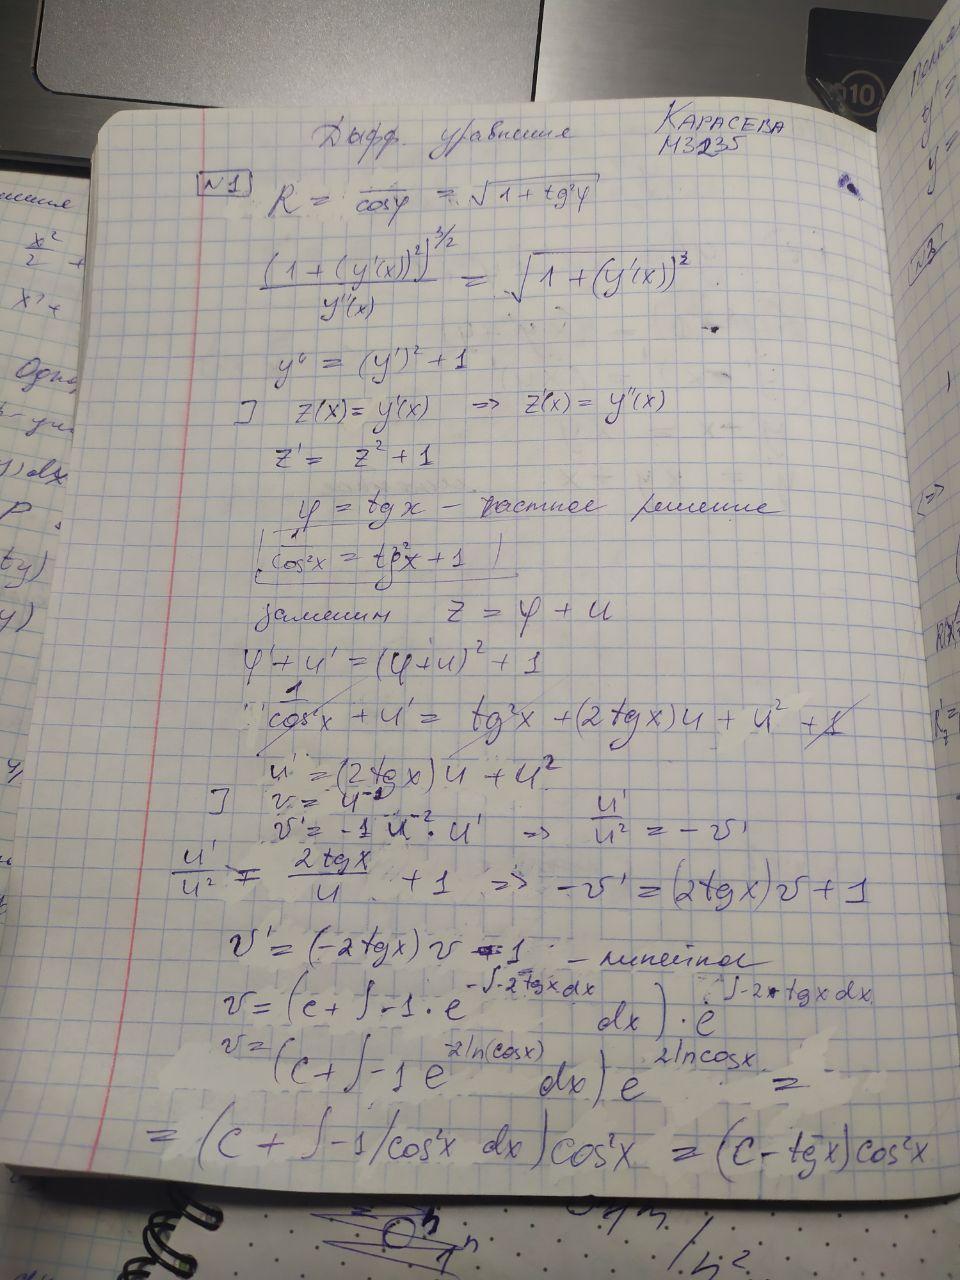 Дифф. уравнения
КАРАСЕВА
М3235
№1 R = 1/cosφ = √(1 + tg²φ)
(1 + (y'(x))²)^(3/2) / y''(x) = √(1 + (y'(x))²)
y'' = (y')² + 1
] z(x) = y'(x) => z'(x) = y''(x)
z' = z² + 1
φ = tg x – частное решение
[1/cos²x = tg²x + 1]
заменим z = φ + u
φ' + u' = (φ + u)² + 1
1/cos²x + u' = tg²x + (2tgx)u + u² + 1
u' = (2tgx)u + u²
] v = u^(-1)
v' = -1 u^(-2) · u' => u'/u² = -v'
u'/u² = 2tgx/u + 1 => -v' = (2tgx)v + 1
v' = (-2tgx)v - 1 – линейное
v = (c + ∫-1·e^(-∫-2tgx dx) dx)·e^(∫-2·tgx dx)
v = (c + ∫-1 e^(-2ln(cosx)) dx) e^(2lncosx) =
= (c + ∫-1/cos²x dx)cos²x = (c - tgx)cos²x
010
x²/2 +
dx
ty)
y)
№3